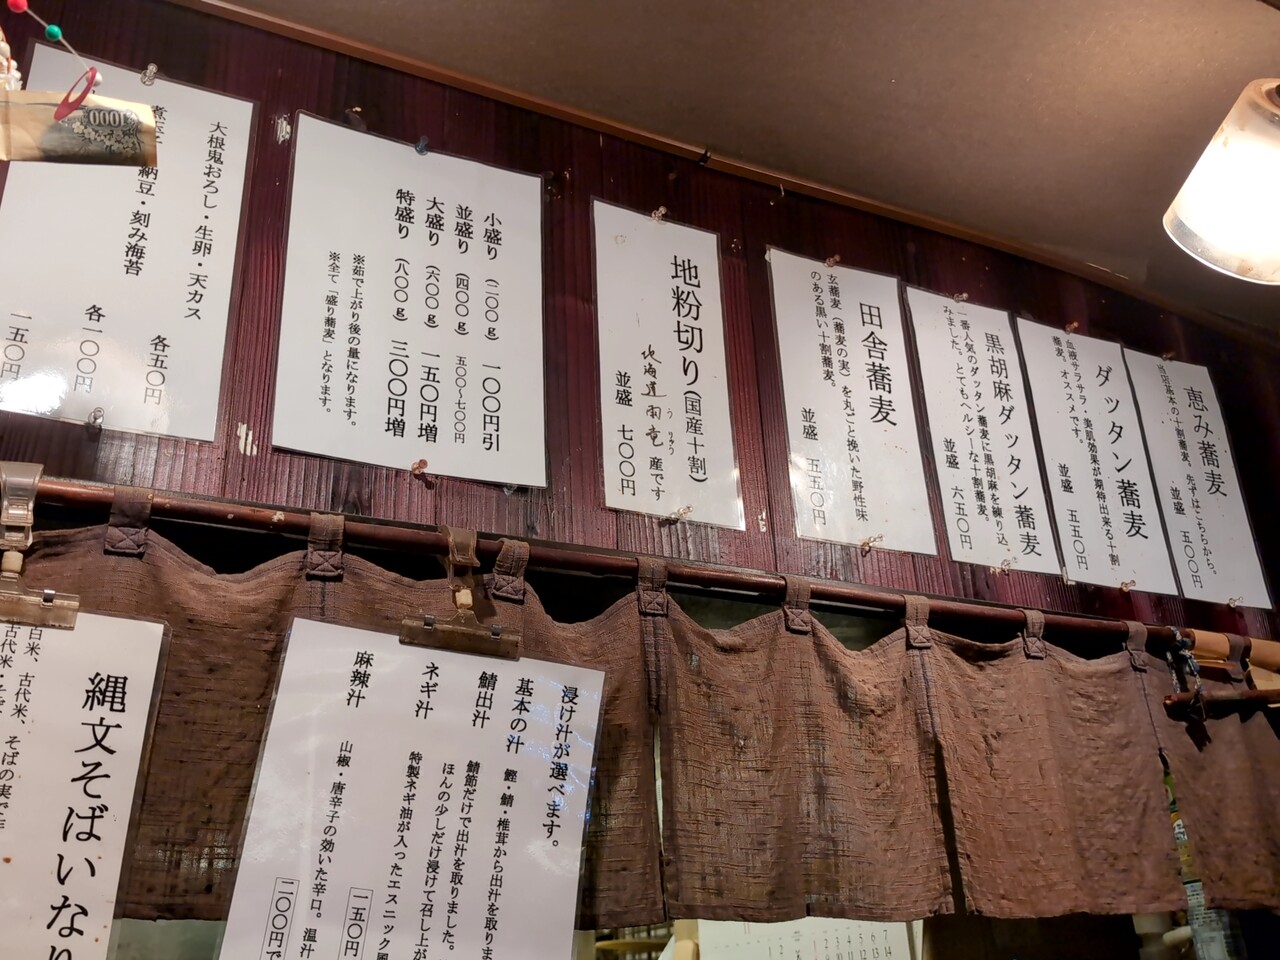 恵み蕎麦
当店基本の十割蕎麦。先ずはこちらから。
並盛 五五〇円
ダッタン蕎麦
血液サラサラ・美肌効果が期待出来る十割
蕎麦。オススメです。
並盛 五五〇円
黒胡麻ダッタン蕎麦
一番人気のダッタン蕎麦に黒胡麻を練り込
みました。とてもヘルシーな十割蕎麦。
並盛 六五〇円
田舎蕎麦
玄蕎麦(蕎麦の実)を丸ごと挽いた野性味
のある黒い十割蕎麦。
並盛 五五〇円
地粉切り(国産十割)
北海道雨竜産です
うりゅう
並盛 七〇〇円
小盛り(二〇〇g) 一〇〇円引
並盛り(四〇〇g) 五〇〇〜七〇〇円
大盛り(六〇〇g) 一五〇円増
特盛り(八〇〇g) 三〇〇円増
※茹で上がり後の量になります。
※全て「盛り蕎麦」となります。
大根鬼おろし・生卵・天カス
各五〇円
納豆・刻み海苔
各一〇〇円
一五〇円
1000
浸け汁が選べます。
基本の汁 鰹・鯖・椎茸から出汁を取りま
鯖出汁 鯖節だけで出汁を取りました。
ほんの少しだけ浸けて召し上が
ネギ汁 特製ネギ油が入ったエスニック風
一五〇円
麻辣汁 山椒・唐辛子の効いた辛口。温汁
二〇〇円で
縄文そばいなり
白米、古代米、そばの実で作